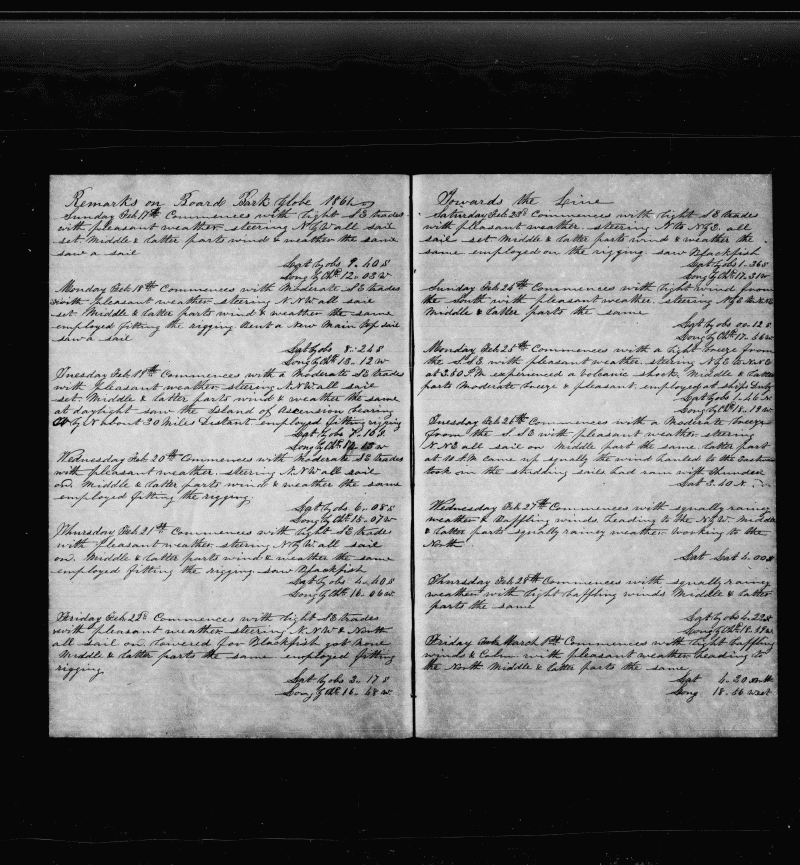 Remarks on Board Bark Globe 1861
Sunday Feb 17th Commences with light S E trades
with pleasant weather steering N by W all sail
set Middle & latter parts wind & weather the same
saw a sail
Lat by obs 9.40 S
Long by Chr 12.03 W
Monday Feb 18th Commences with Moderate S E trades
with pleasant weather steering N.N.W all sail
set Middle & latter parts wind & weather the same
employed fitting the rigging Bent a New Main Top sail
saw a sail
Lat by obs 8.24 S
Long by Chr 13.12 W
Tuesday Feb 19th Commences with a moderate S E trades
with pleasant weather steering N.N.W all sail
set. Middle & latter parts wind & weather the same
at daylight saw the Island of Ascension bearing
by N about 30 Miles Distant employed fitting rigging
Lat by obs 7.16 S
Long by Chr W
Wednesday Feb 20th Commences with Moderate S E trades
with pleasant weather steering N.N.W all sail
on Middle & latter parts wind & weather the same
employed fitting the rigging
Lat by obs 6.08 S
Long by Chr 15.07 W
Thursday Feb 21st Commences with light S E trades
with pleasant weather steering N by W all sail
on. Middle & latter parts wind & weather the same
employed fitting the rigging saw Blackfish
Lat by obs 4.40 S
Long by Chr 16.06 W
Friday Feb 22d Commences with light S E trades
with pleasant weather steering N.N.W & North
all sail on lowered for Blackfish got None
Middle & latter parts the same employed fitting
rigging
Lat by obs 3.17 S
Long by Chr 16.48 W
Towards the Line
Saturday Feb 23d Commences with light S E trades
with pleasant weather steering N to N by E. all
sail set Middle & latter parts wind & weather the
same employed on the rigging saw Blackfish
Lat by obs 1.36 S
Long by Chr 17.31 W
Sunday Feb 24th Commences with light wind from
the South with pleasant weather. steering N by E to N.N.E
Middle & latter parts the same
Lat by obs 00.12 S
Long by Chr 17.56 W
Monday Feb 25th Commences with a light breeze from
the S.S.E with pleasant weather steering N by E to N.N.E
at 2.40 P.M experienced a volcanic shock. Middle & latter
parts moderate breeze & pleasant. employed at ships Duty
Lat by obs 1.46 N
Long by Chr 18.19 W
Tuesday Feb 26th Commences with a Moderate breeze
from the S S E with pleasant weather steering
N.N.E all sail on Middle part the same. latter part
at 10 A.M came up squally the wind hauled to the Eastward
took in the studding sails had rain with thunder
Lat 3.40 N
Wednesday Feb 27th Commences with squally rainy
weather & Baffling winds heading to the N by W. Middle
& latter parts squally rainey weather working to the
North
Lat Lat 4.00 N
Thursday Feb 28th Commences with squally rainey
weather with light baffling winds Middle & latter
parts the same
Lat by obs 4.22 N
Long by Chr 18.49 W
Friday March 1st Commences with light baffling
winds & Calm with pleasant weather heading to
the North. Middle & latter parts the same
Lat 4.20 North
Long 18.56 West